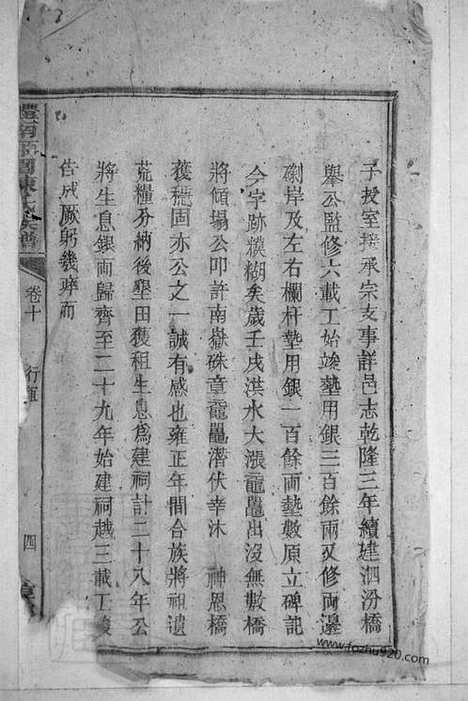 子授室接承宗支事詳邑志乾隆三年續建泗汾橋
舉公監修六載工始竣墊用銀三百餘兩又修兩邊
磡岸及左右欄杆墊用銀一百餘兩墊數原立碑記
今字跡糢糊矣歲壬戌洪水大漲黿鼉出沒無數橋
將傾塌公叩許南嶽硃章黿鼉潛伏幸沐 神恩橋
獲穩固亦公之一誠有感也雍正年間合族將祖遺
荒糧分納後墾田獲租生息爲建祠計二十八年公
將生息銀兩歸齊至二十九年始建祠越三載工竣
告成厥躬幾瘁而
卷十
行
四
www.fozhu920.com